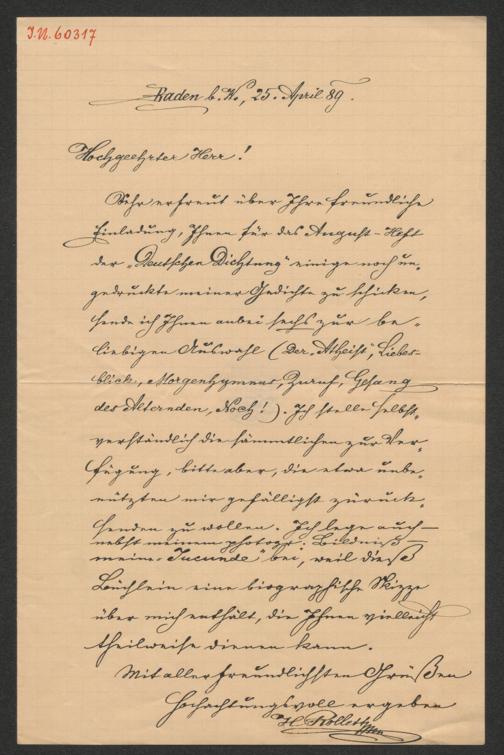 I.N. 60317
Baden b. W., 25. April 89.
Hochgeehrter Herr!
Sehr erfreut über Ihre freundliche
Einladung, Ihnen für das August-Heft
der „Deutschen Dichtung" einige noch un-
gedruckte meiner Gedichte zu schicken,
sende ich Ihnen anbei sechs zur be-
liebigen Auswahl (Der „Atheist", Liebes-
blick, Morgenhymnus, Zuruf, Gesang
des Alternden, Noch!). Ich stelle selbst-
verständlich die sämmtlichen zur Ver-
fügung, bitte aber, die etwa unbe-
nützten mir gefälligst zurück-
senden zu wollen. Ich lege auch —
nebst meinem photogr. Bildniß —
meine „Jucunde" bei, weil dieß
Büchlein eine biographische Skizze
über mich enthält, die Ihnen vielleicht
theilweise dienen kann.
Mit allerfreundlichsten Grüßen
hochachtungsvoll ergeben
H. Rollett